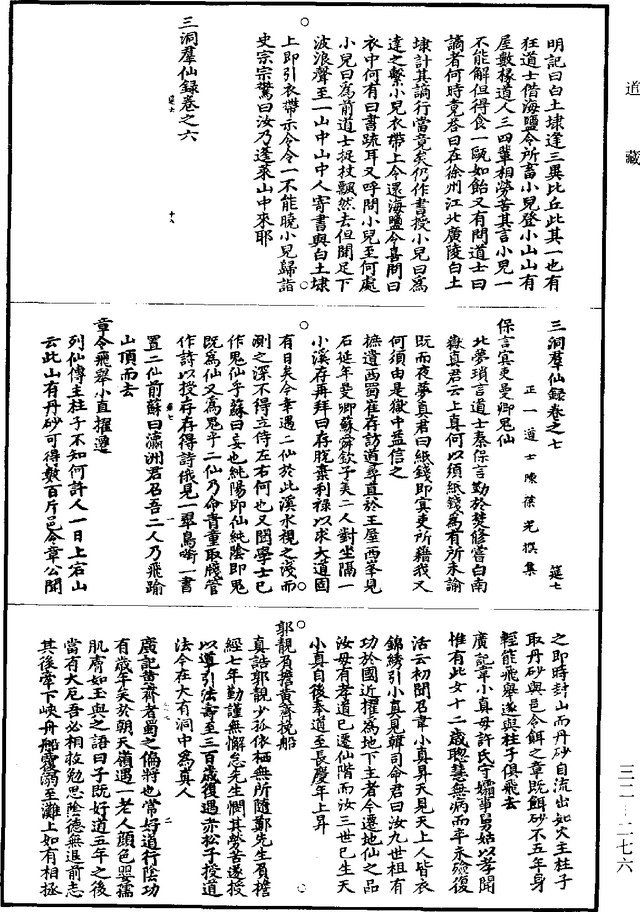 道藏
明記曰白土埭逢三異比丘此其一也有
狂道士借海鹽令所畜小兒登小山山有
屋數椽道人三四輩相勞苦其言小兒一
不能解但得食一甌如飴又有問道士曰
謫者何時竟荅曰在徐州江北廣陵白土
埭計其謫行當竟矣仍作書授小兒曰爲
達之繫小兒衣帶上令還海鹽令喜問曰
衣中何有曰書䟽耳又呼問小兒至何處
小兒曰爲前道士捉杖飄然去但聞足下
波浪聲至一山中山中人寄書與白土埭
上即引衣帶示令令一不能曉小兒歸詣
史宗宗驚曰汝乃蓬萊山中來耶
三洞羣仙録卷之六
三洞羣仙録卷之七
筵七
正一道士陳葆光撰集
保言寘吏曼卿鬼仙
北夢瑣言道士秦保言勤於焚修嘗白南
嶽真君云上真何以須紙錢爲有所未諭
既而夜夢真君曰紙錢即寘吏所籍我又
何須由是嶽中益信之
摭遺西蜀崔存訪道尋真於王屋西峯見
石延年曼卿蘇舜欽子美二人對坐隔一
小溪存再拜曰存脫棄利禄以求大道固
有日矣今幸遇二仙於此溪水視之淺而
測之深不得立侍左右何也又問學士已
作鬼仙乎蘇曰妄也純陽即仙純陰即鬼
既爲仙又爲鬼乎二仙乃命青童取牋管
作詩以授存存得詩俄見一翠鳥啣一書
置二仙前蘇曰瀛洲君召吾二人乃飛踰
山頂而去
章令飛舉小直擢遷
列仙傳主柱子不知何許人一日上宕山
云此山有丹砂可得數百斤邑令章公聞
之即時封山而丹砂自流出如火主柱子
取丹砂與邑令餌之章既餌砂不五年身
輕能飛舉遂與柱子俱飛去
廣記韋小真母許氏守孀事舅姑以孝聞
惟有此女十二歲聰慧無病而卒未殮復
活云初聞召韋小真昇天見天上人皆衣
錦綉引小真見韓司命君曰汝九世祖有
功於國近擢爲地下主者今遷地仙之品
汝母有孝道已遷仙階而汝三世已生天
小真自後奉道至長慶年上昇
郭靚負擔黄齊挽船
真誥郭靚少孤依栖無所隨鄭先生負擔
經七年勤謹無懈怠先生憫其勞苦遂授
以導引法壽至三百歲復遇赤松子授道
法今在大有洞中爲真人
廣記黄齊者蜀之偏將也常好道行陰功
有歲年矣於朝天嶺遇一老人顔色嬰孺
肌膚如玉與之語曰子既好道五年之後
當有大厄吾必相救勉思陰德無退前志
其後牽下峽舟船覆溺至灘上如有相拯
三二—二七六